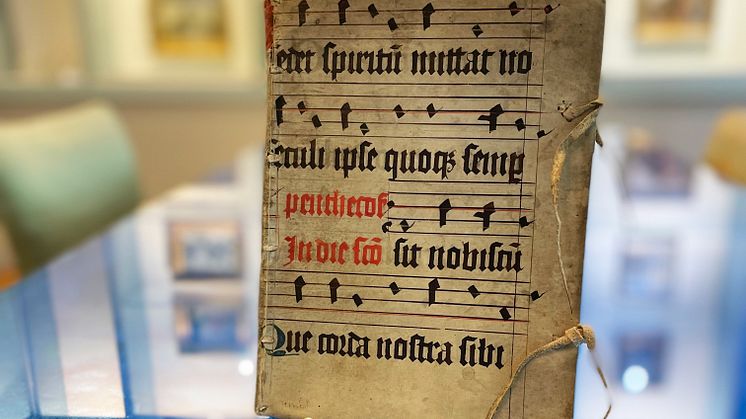 spiritū mittat no
seculi ipse quoqꝫ semꝑ
penthecos
In die scō sit nobiscū
Que corda nostra sibi